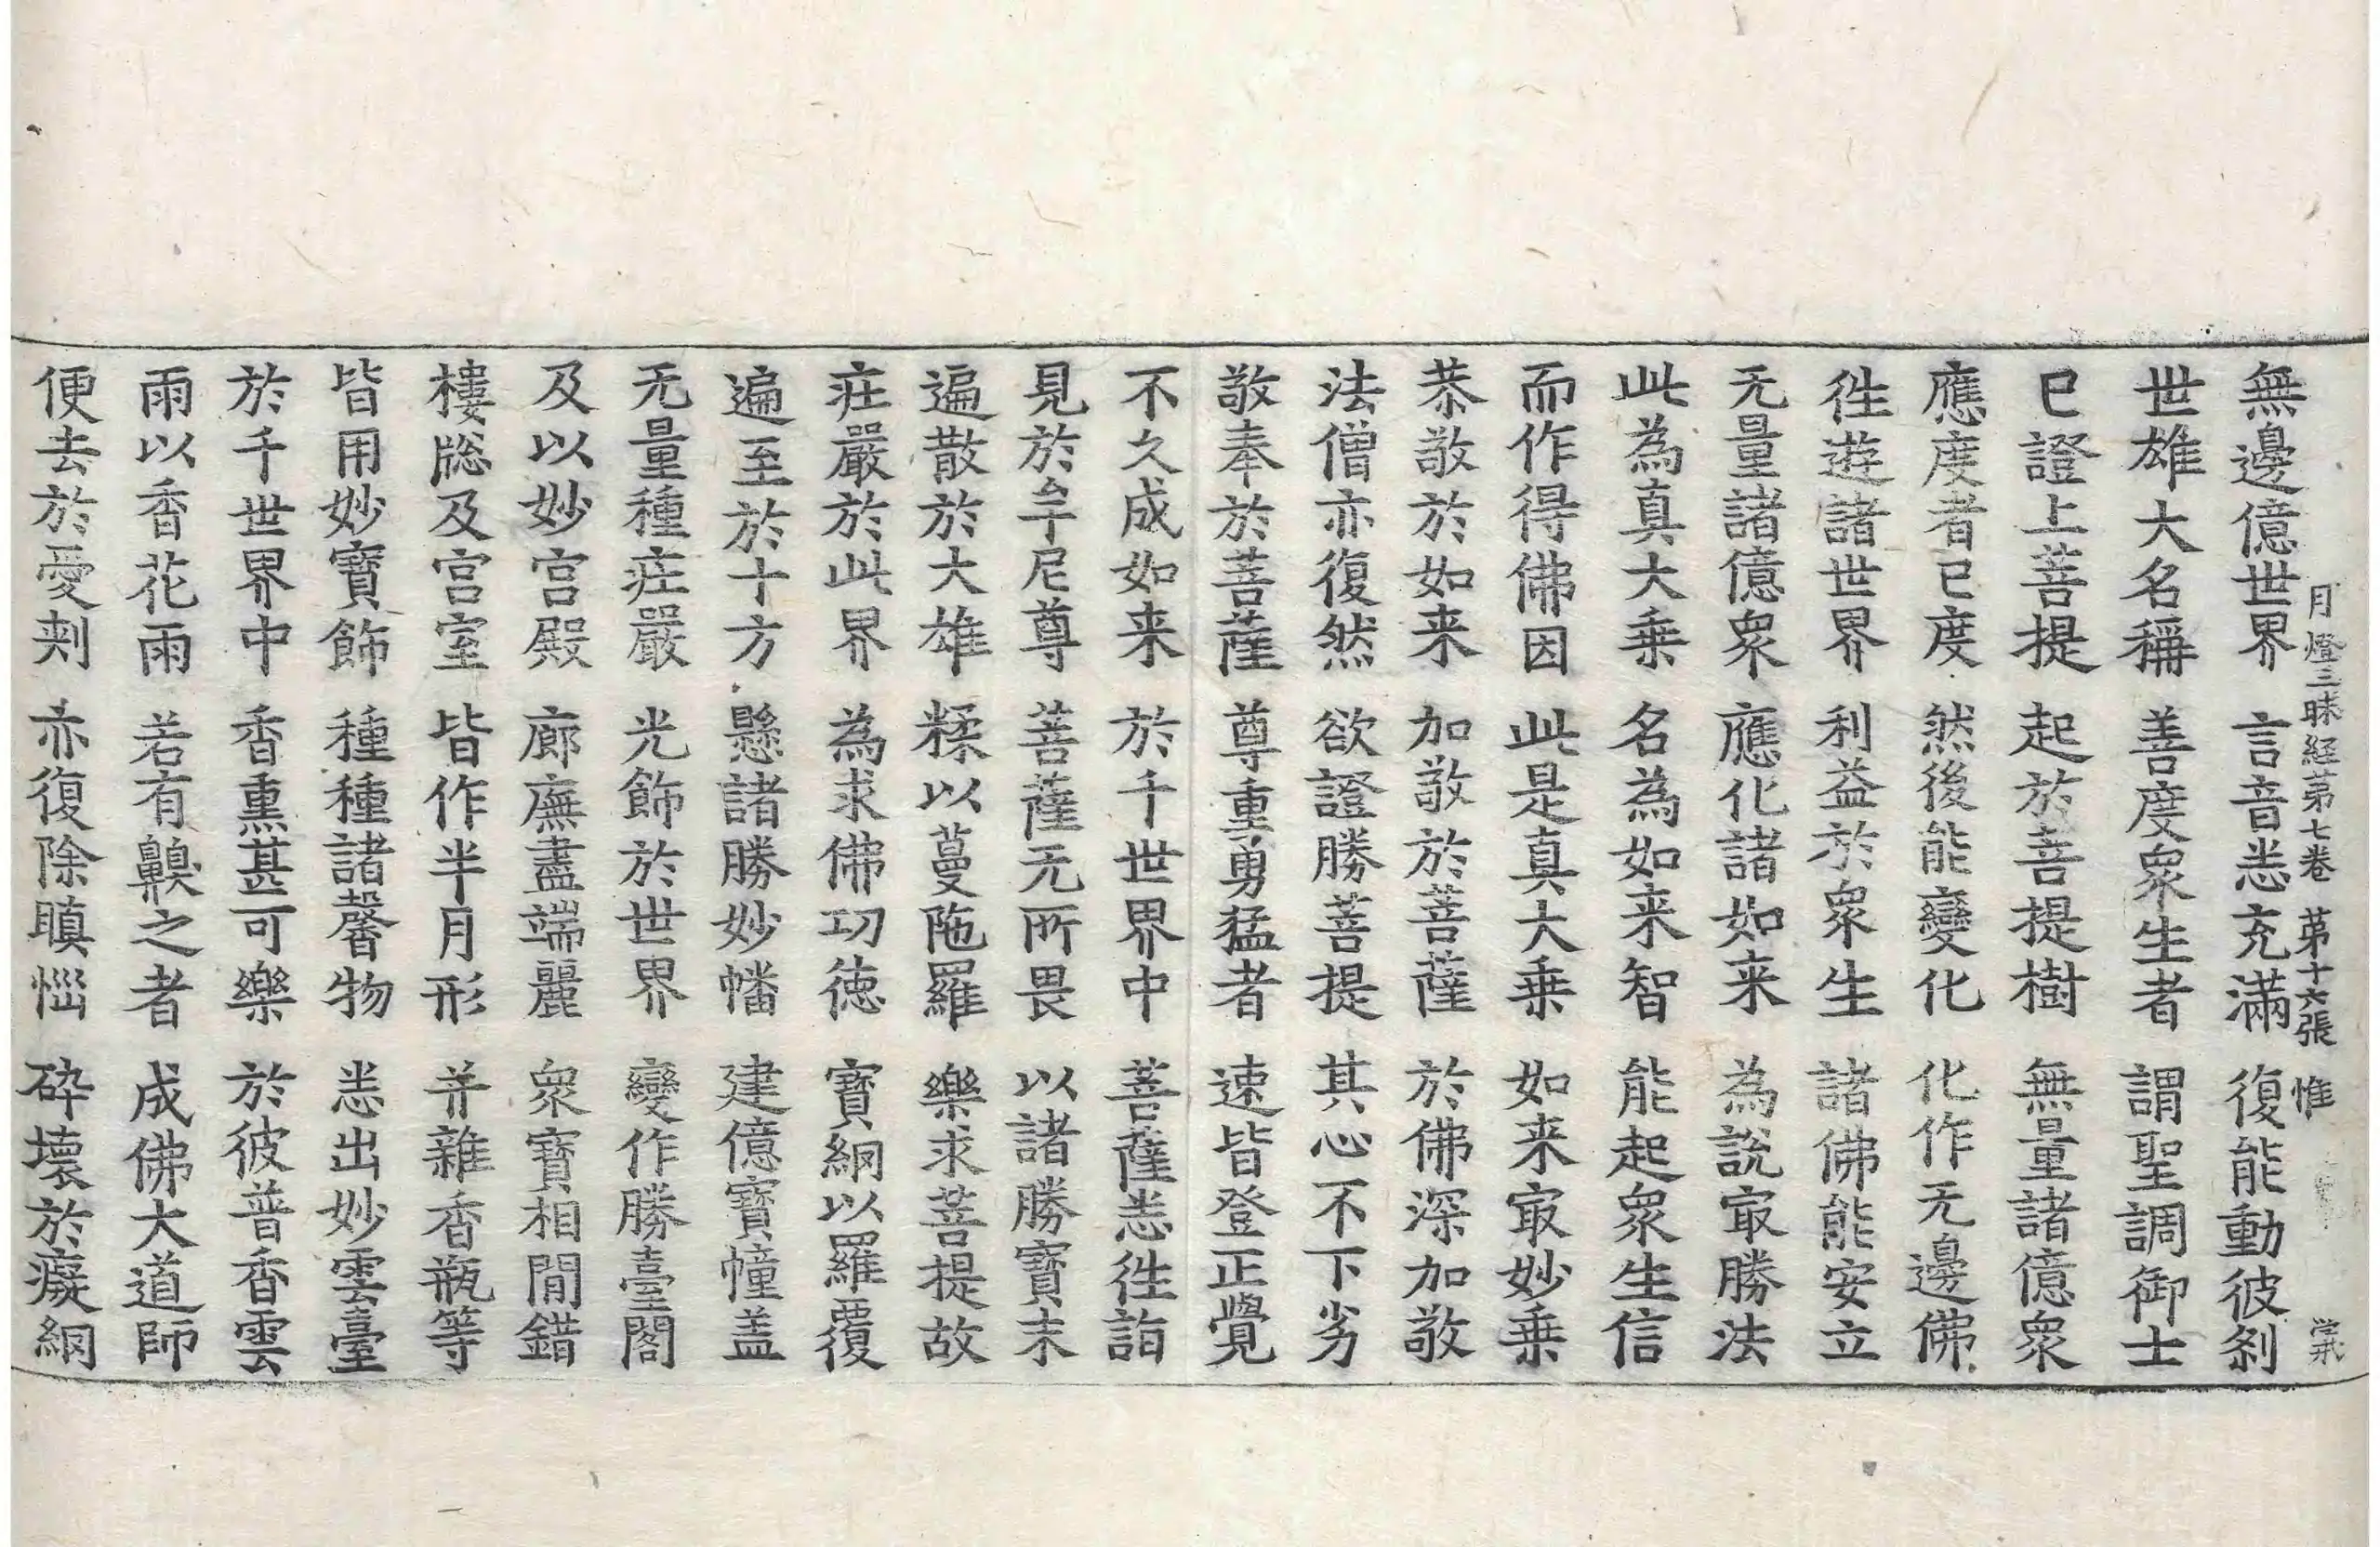 月燈三昧経苐七卷 苐十六張 惟
無邊億世界 言音恙充滿 復能動彼剎
世雄大名稱 善度衆生者 謂聖調御士
已證上菩提 起於菩提樹 無量諸億衆
應度者已度 然後能變化 化作无邊佛
徃遊諸世界 利益於衆生 諸佛能安立
无量諸億衆 應化諸如来 為說㝡勝法
此為真大乗 名為如来智 能起衆生信
而作得佛因 此是真大乗 如来㝡妙乗
恭敬於如来 加敬於菩薩 於佛深加敬
法僧亦復然 欲證勝菩提 其心不下劣
敬奉於菩薩 尊重勇猛者 速皆登正覺
不久成如来 於千世界中 菩薩恙徃詣
見於牟尼尊 菩薩无所畏 以諸勝寶末
遍散於大雄 糅以蔓陁羅 樂求菩提故
庄嚴於此界 為求佛功徳 寶網以羅覆
遍至於十方 懸諸勝妙幡 建億寶幢盖
无量種庄嚴 光飾於世界 變作勝臺閣
及以妙宫殿 廊廡盡端麗 衆寶相間錯
樓牎及宫室 皆作半月形 并雜香瓶等
皆用妙寶飾 種種諸馨物 恙出妙雲臺
於千世界中 香熏甚可樂 於彼普香雲
雨以香花雨 若有齅之者 成佛大道師
便去於愛刾 亦復除瞋惱 碎壊於癡網